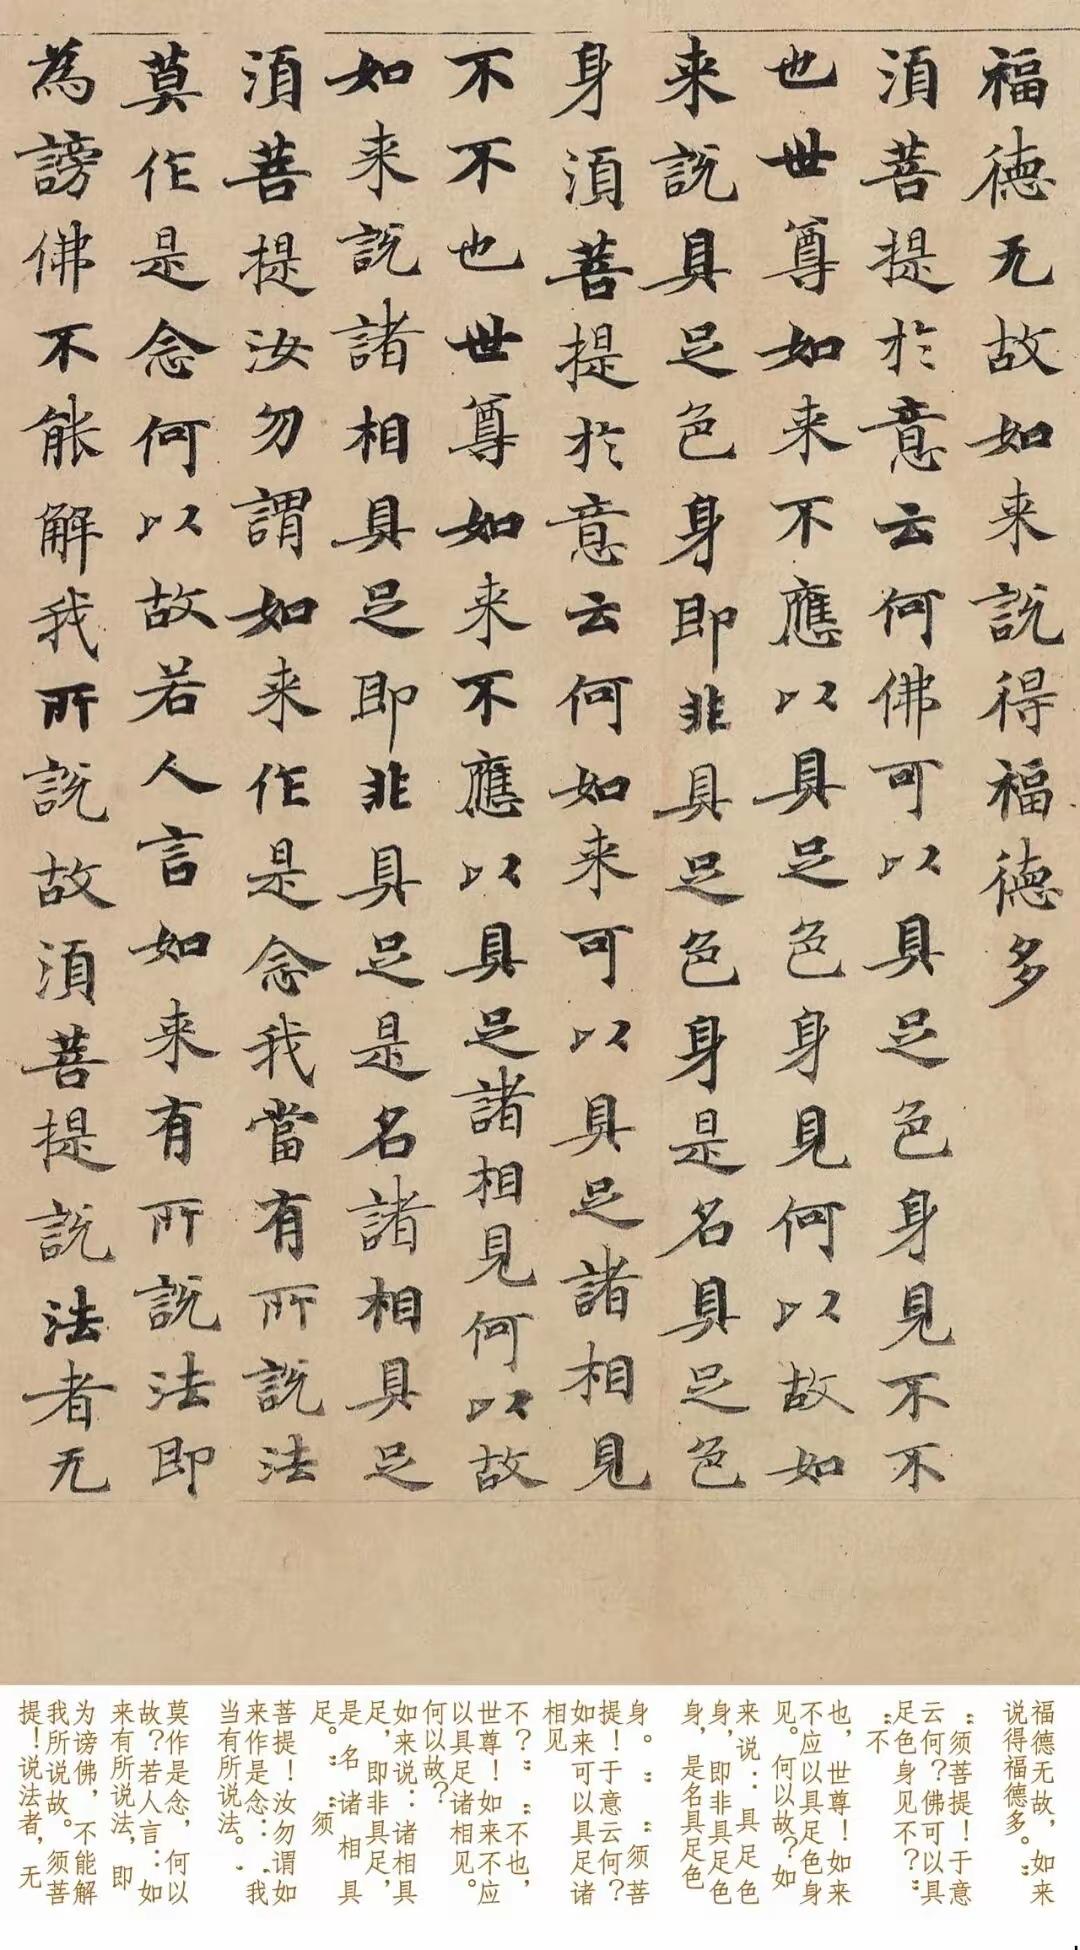 福德无故如来説得福德多
湏菩提扵意云何佛可以具足色身見不不
也世尊如来不應以具足色身見何以故如
来説具足色身即非具足色身是名具足色
身湏菩提扵意云何如来可以具足諸相見
不不也世尊如来不應以具足諸相見何以故
如来説諸相具足即非具足是名諸相具足
湏菩提汝勿謂如来作是念我當有所説法
莫作是念何以故若人言如来有所説法即
為謗佛不能解我所説故湏菩提説法者无
福德无故，如来
说得福德多。”
“须菩提！于意
云何？佛可以具
足色身见不？”
“不
也，世尊！如来
不应以具足色身
见。何以故？如
来说：具足色
身，即非具足色
身，是名具足色
身。”“须菩
提！于意云何？
如来可以具足诸
相见
不？”“不也，
世尊！如来不应
以具足诸相见。
何以故？
如来说：诸相具
足，即非具足，
是名诸相具
足。”“须
菩提！汝勿谓如
来作是念：‘我
当有所说法。’
莫作是念，何以
故？若人言：如
来有所说法，即
为谤佛，不能解
我所说故。须菩
提！说法者，无